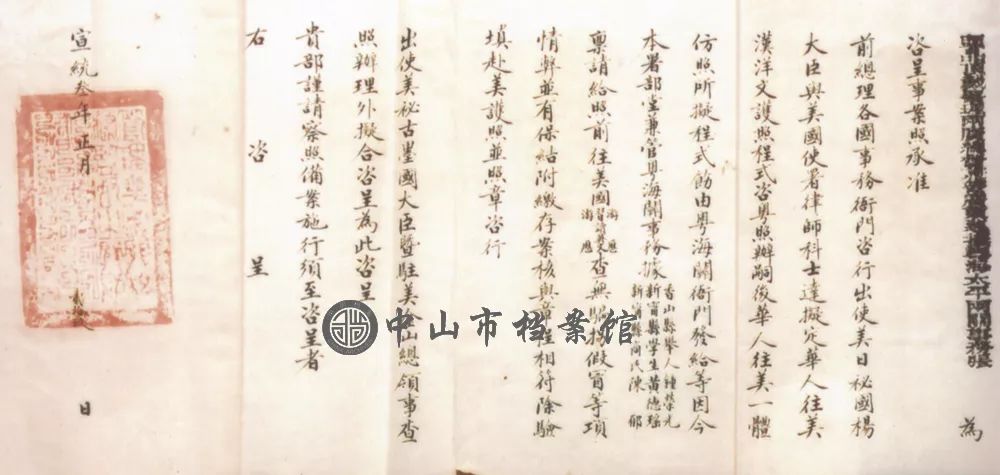 為
咨呈事案照承准
前總理各國事務衙門咨行出使美日秘國楊
大臣與美國使署律師科士達擬定華人往美
漢洋文護照程式咨粵照辦嗣後華人往美一體
仿照所擬程式飭由粵海關衙門發給等因今
本署部堂兼管粵海關事務據
香山縣舉人鍾榮光
新甯縣學生黃德瑤
縣商民陳郁
稟請給照前往美國
游歷
游歷
查無假冒等項
情弊並有保結附繳存案核與章程相符除驗
填赴美護照並照章咨行
出使美秘古墨國大臣暨駐美金山總領事查
照辦理外擬合咨呈為此咨呈
貴部謹請察照備案施行須至咨呈者
右咨呈
宣統叁年正月 日
中山市档案館